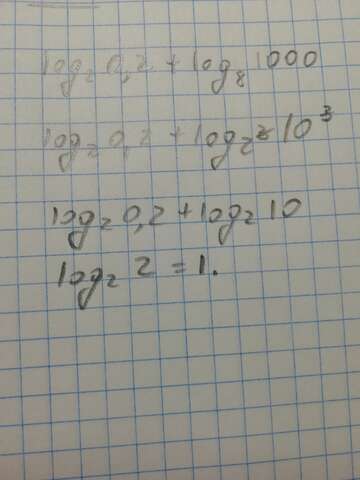 log₂ 0,2 + log₈ 1000
log₂ 0,2 + log₂³ 10³
log₂ 0,2 + log₂ 10
log₂ 2 = 1.